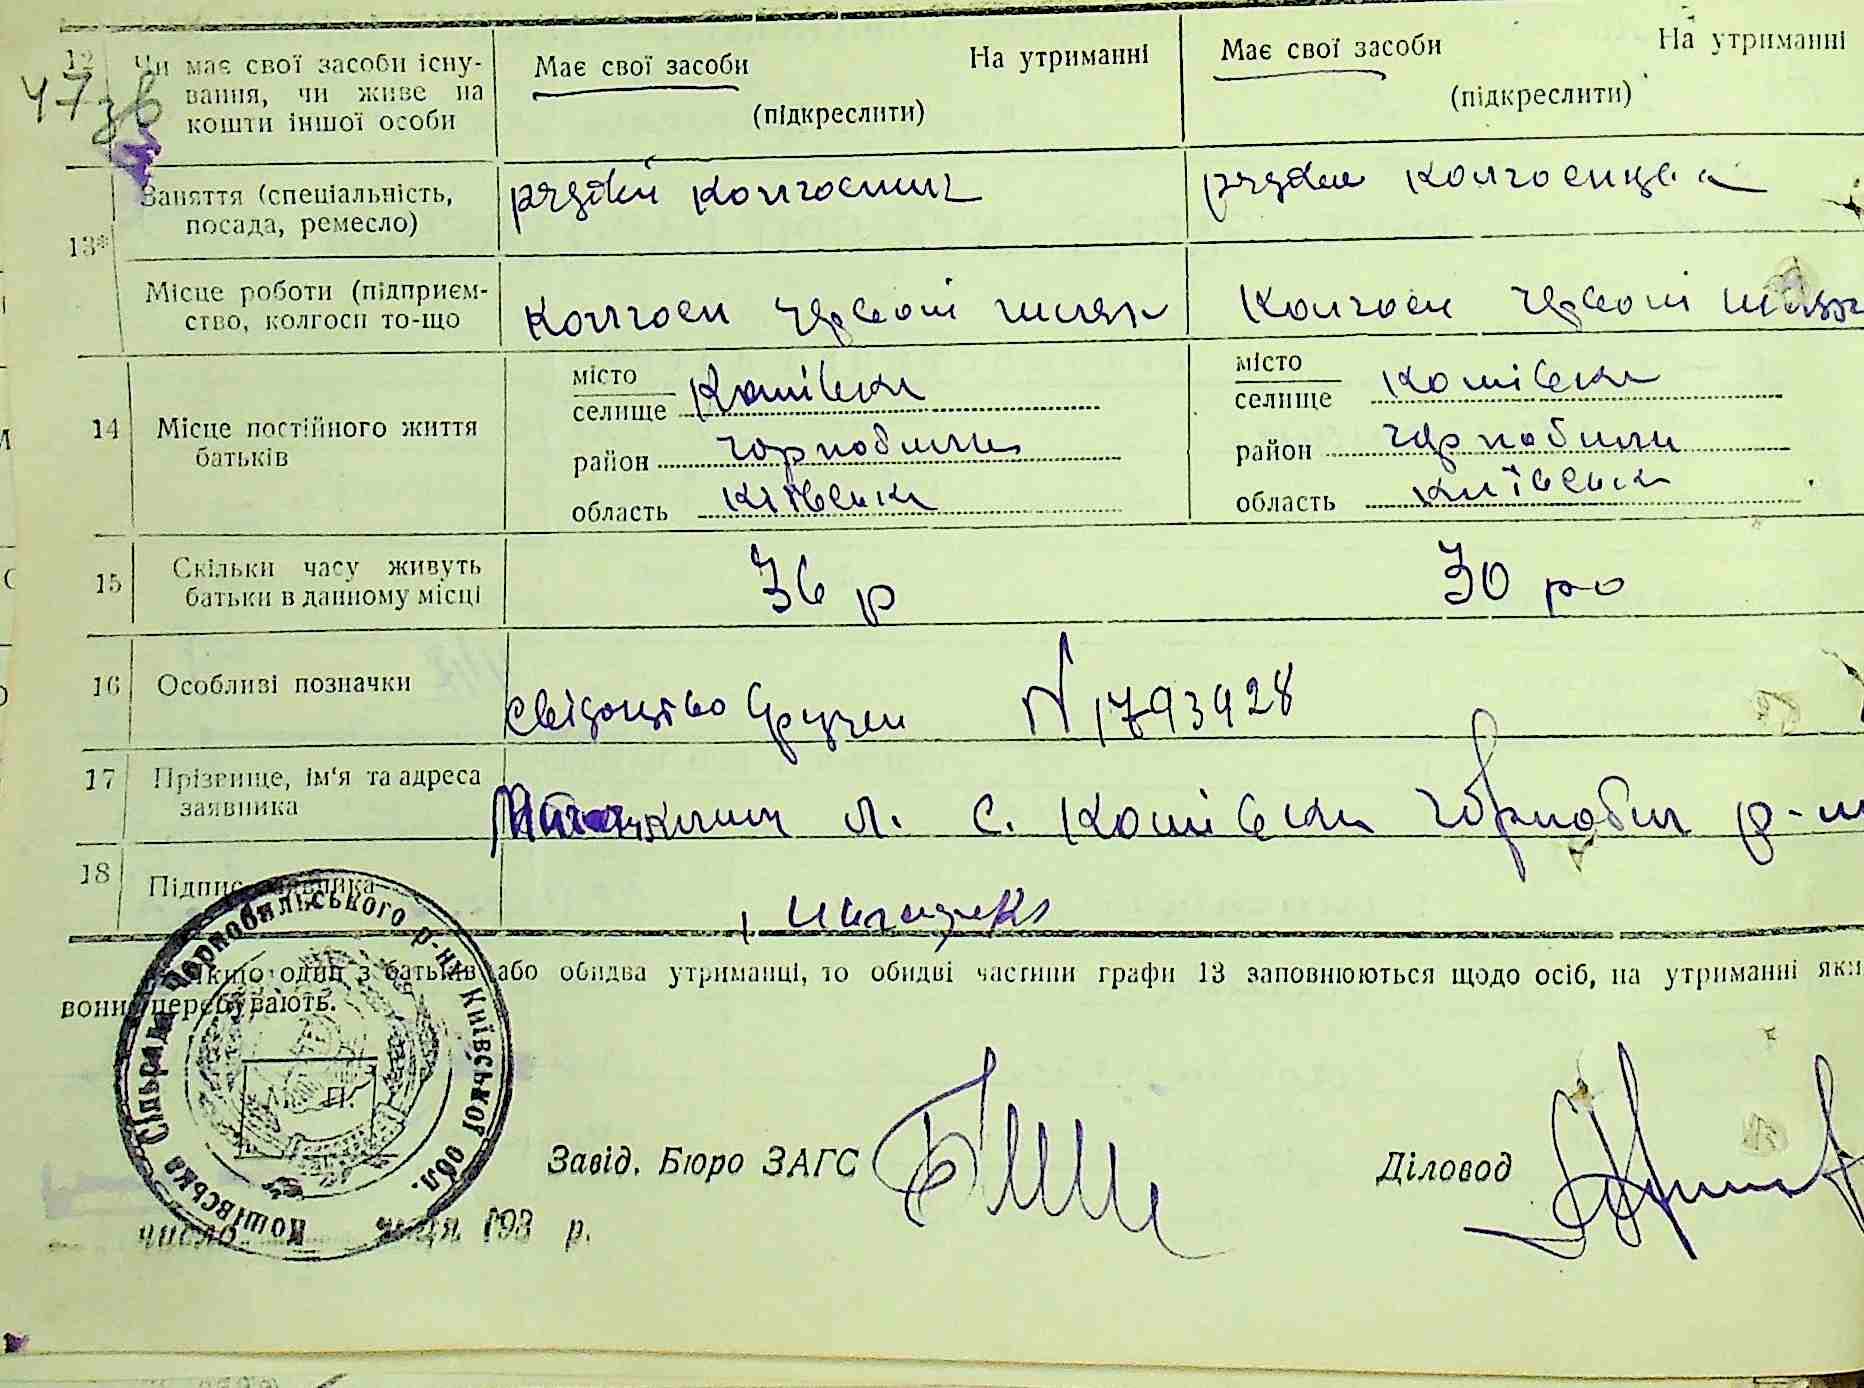 47зв
12 Чи має свої засоби існу-
вання, чи живе на
кошти іншої особи
Має свої засоби На утриманні
(підкреслити)
Має свої засоби На утриманні
(підкреслити)
13* Заняття (спеціальність,
посада, ремесло)
рядкй колгоспник
рядкм колгоспцва
Місце роботи (підприєм-
ство, колгосп то-що
колгосп червоні шлях
колгосп червоні шлях
14 Місце постійного життя
батьків
місто
селище Кошівка
район Чорнобиль
область київська
місто
селище Кошівка
район Чорнобиль
область київська
15 Скільки часу живуть
батьки в данному місці
36 р
30 ро
16 Особливі позначки
свідоцтво вручен № 1793928
17 Прізвище, ім'я та адреса
заявника
л. с. Кошівка Чорнобил р-н
18 Підпис заявника
Якщо один з батьків або обидва утриманці, то обидві частини графи 13 заповнюються щодо осіб, на утриманні яки
вони перебувають.
Кошівська Сільрада Чорнобильського р-ну Київської обл.
М. П.
Завід. Бюро ЗАГС
Діловод
число м-ця 193 р.